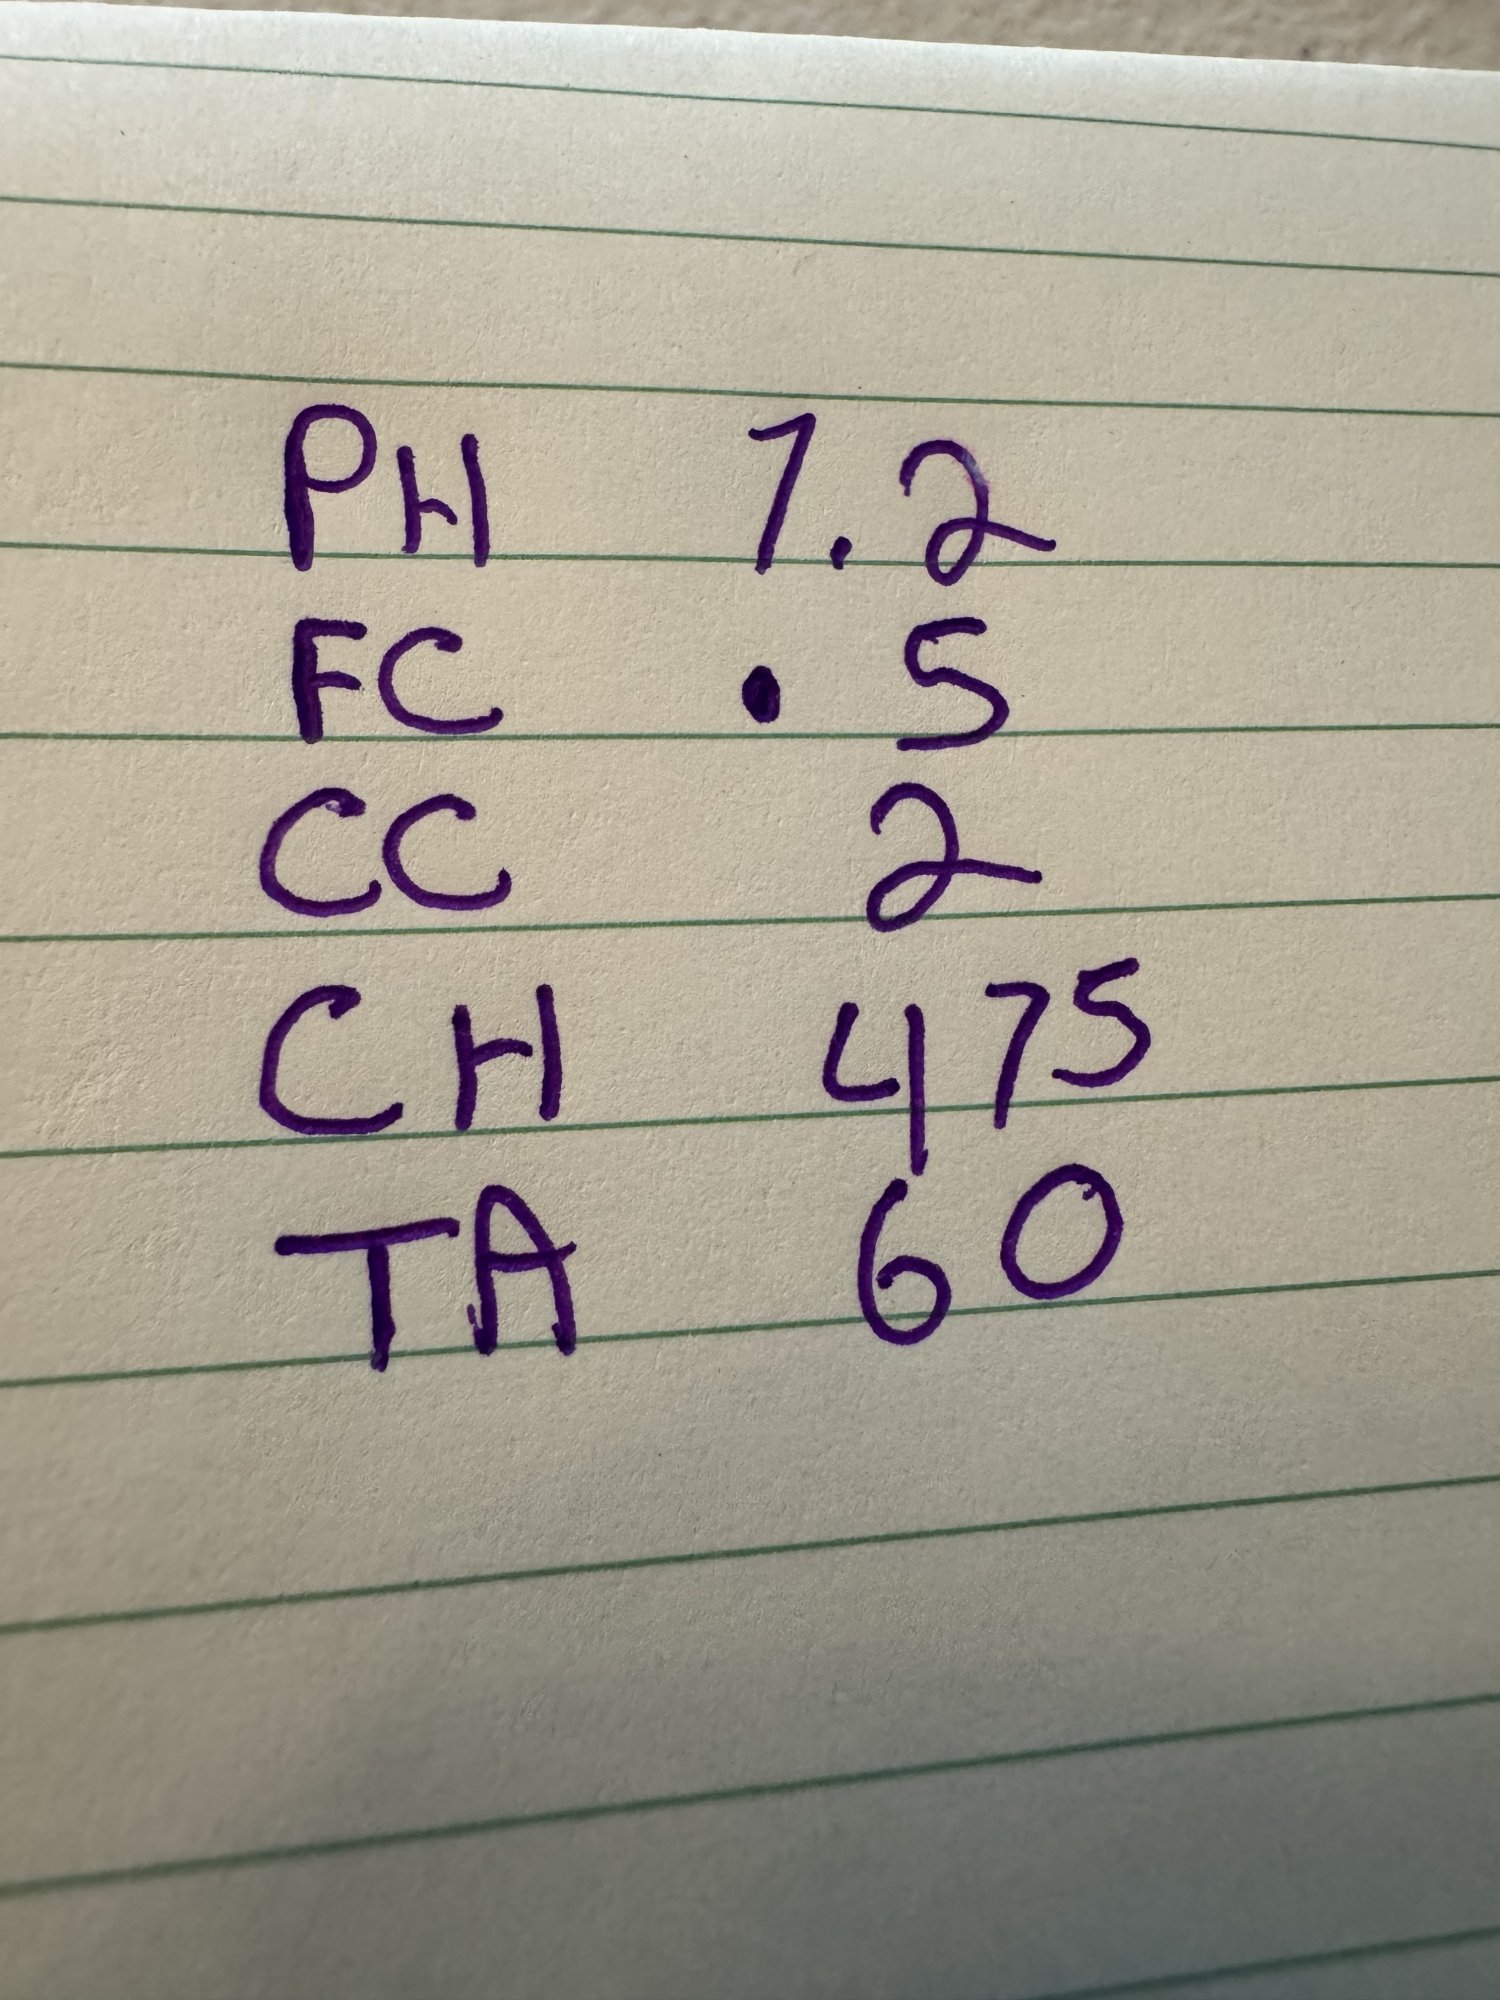 PH 7.2
FC .5
CC 2
CH 475
TA 60